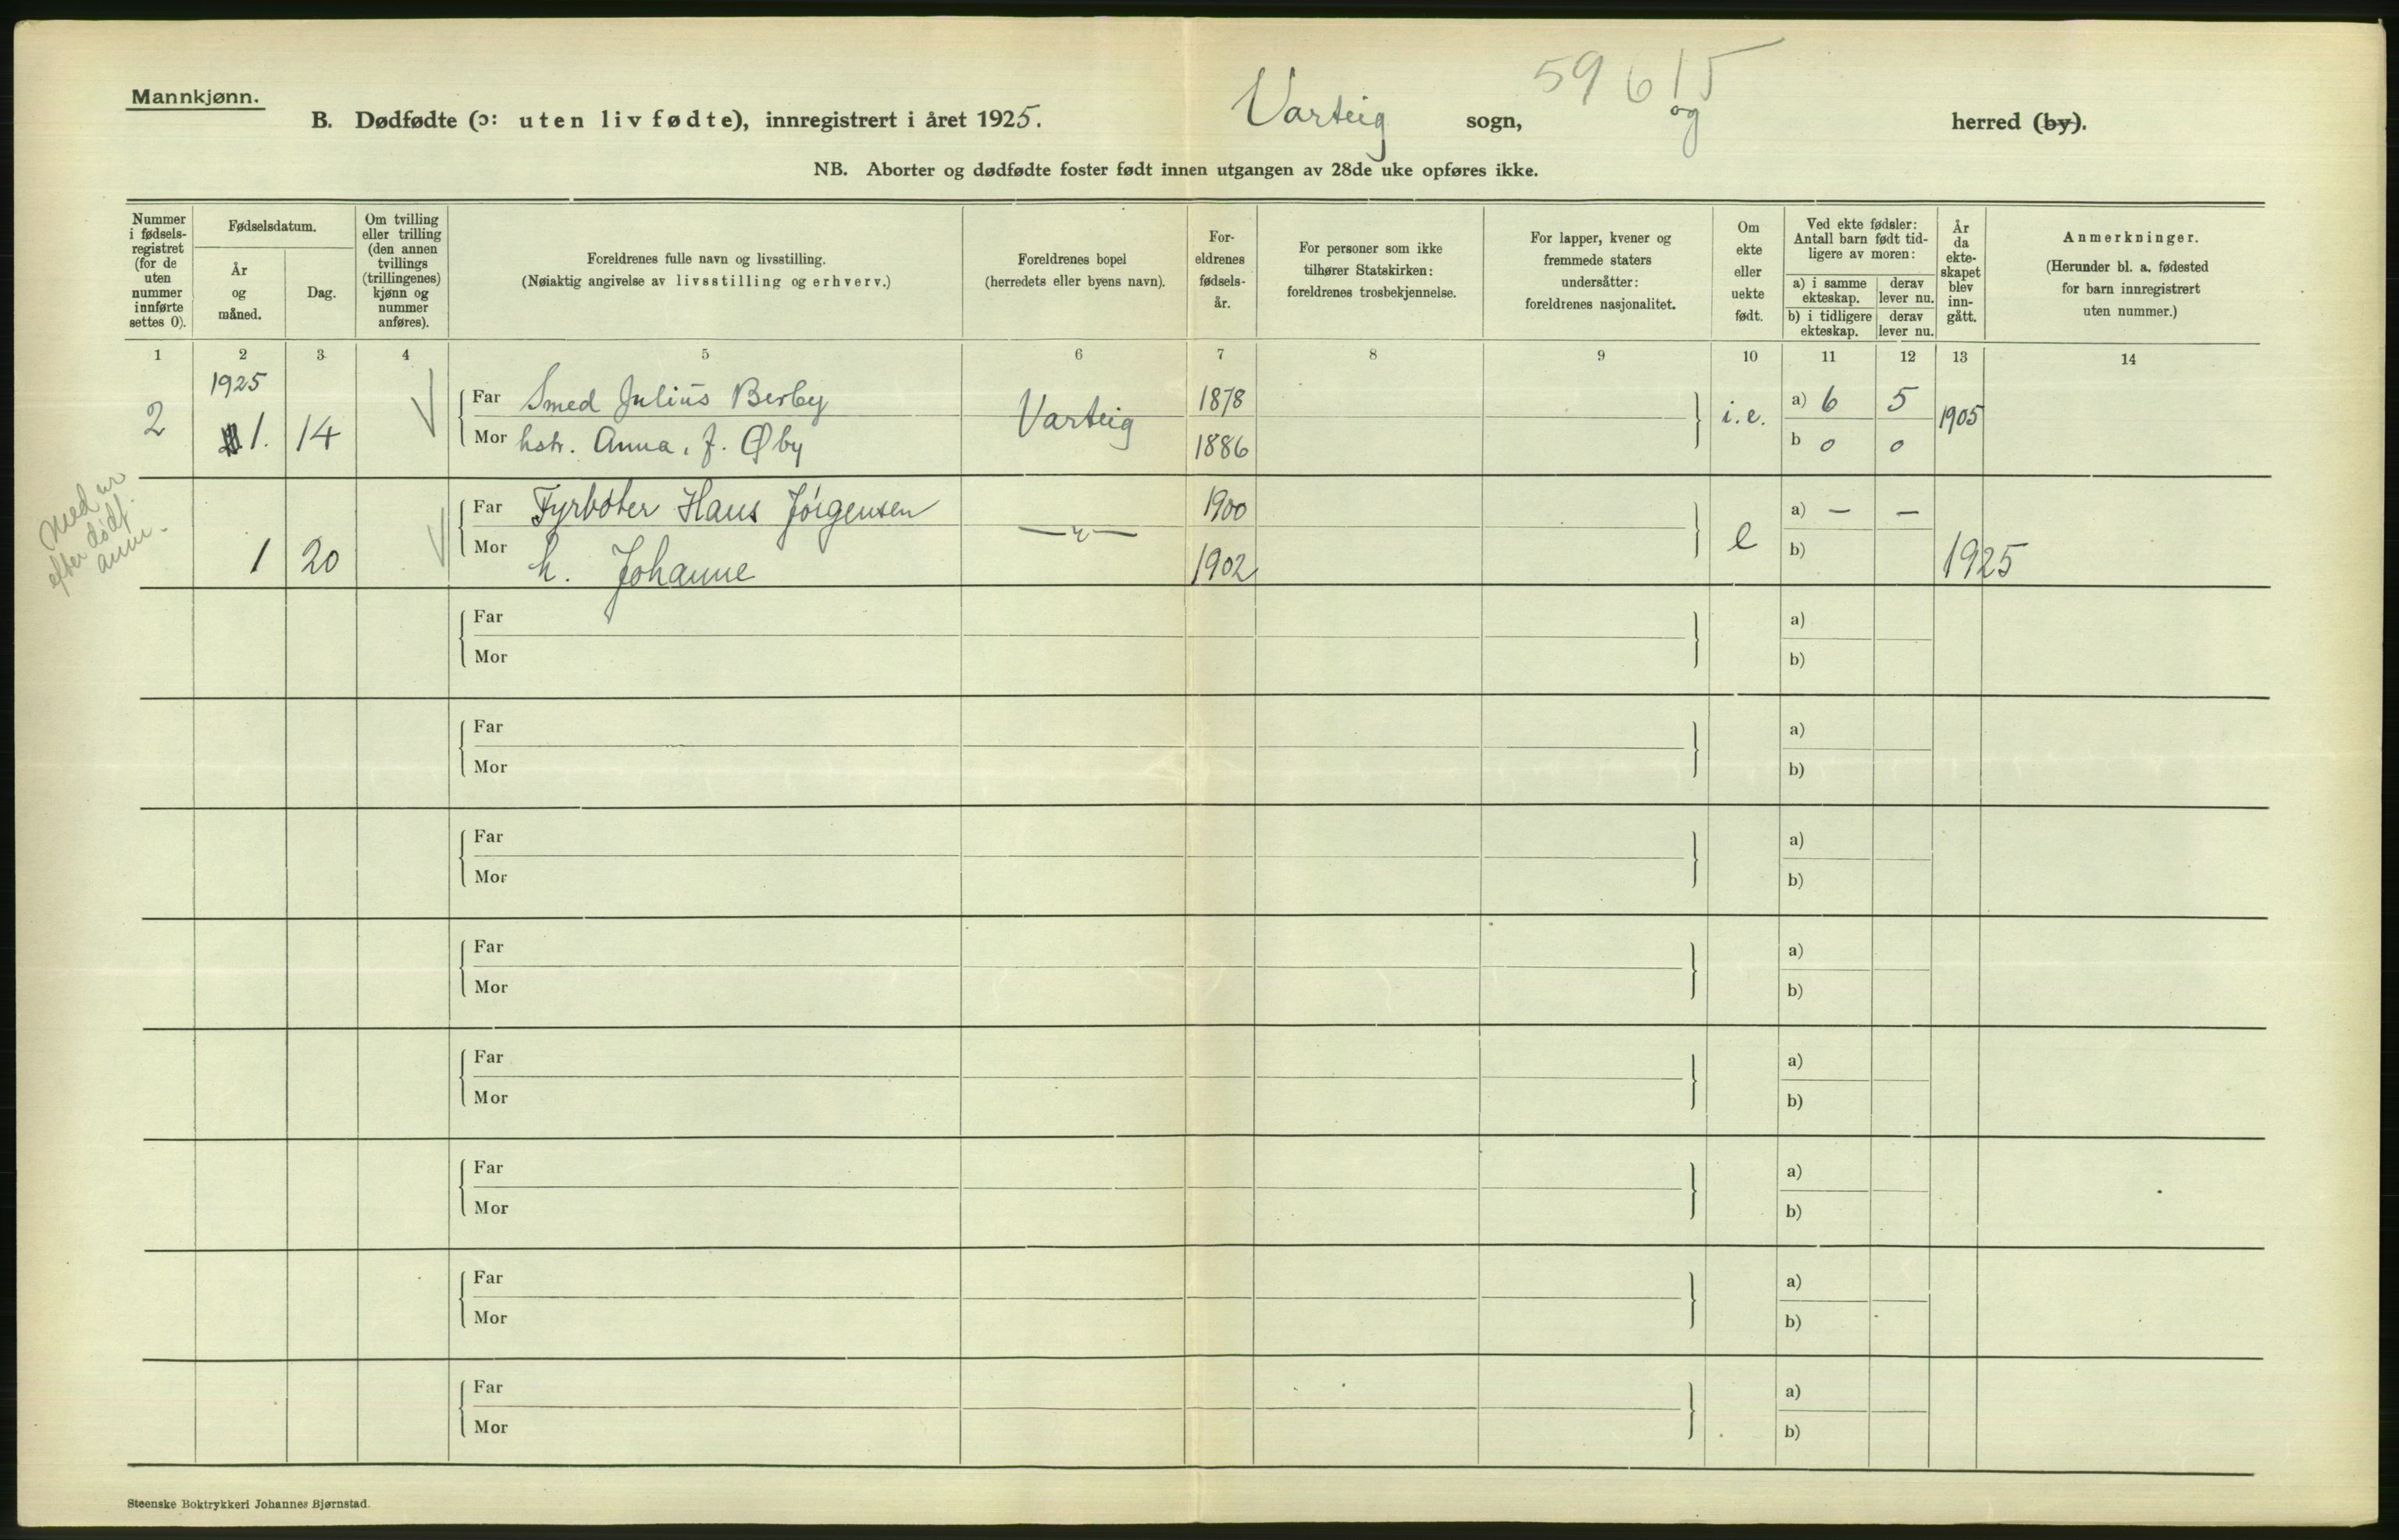 59615
Mannkjønn.
B. Dødfødte (ɔ: uten liv fødte), innregistrert i året 1925. Varteig sogn, og herred (by).
NB. Aborter og dødfødte foster født innen utgangen av 28de uke opføres ikke.
Nummer i fødsels-registret (for de uten nummer innførte settes 0).
Fødselsdatum.
År og måned.
Dag.
Om tvilling eller trilling (den annen tvillings (trillingenes) kjønn og nummer anføres).
Foreldrenes fulle navn og livsstilling.
(Nøiaktig angivelse av livsstilling og erhverv.)
Foreldrenes bopel
(herredets eller byens navn).
For-eldrenes fødsels-år.
For personer som ikke tilhører Statskirken: foreldrenes trosbekjennelse.
For lapper, kvener og fremmede staters undersåtter: foreldrenes nasjonalitet.
Om ekte eller uekte født.
Ved ekte fødsler: Antall barn født tid-ligere av moren:
a) i samme ekteskap.
derav lever nu.
b) i tidligere ekteskap.
derav lever nu.
År da ekte-skapet blev inn-gått.
Anmerkninger.
(Herunder bl. a. fødested for barn innregistrert uten nummer.)
1 2 3 4 5 6 7 8 9 10 11 12 13 14
1925
2 1. 14 Far Smed Julius Berby Varteig 1878 i.e. a) 6 5 1905
Mor hstr. Anna. J. Øby 1886 b 0 0
Med er
efter dødf.
anm.
Far Fyrbøter Hans Jörgensen —"— 1900 e a) — —
1 20 Mor h. Johanne 1902 b) 1925
Far a)
Mor b)
Far a)
Mor b)
Far a)
Mor b)
Far a)
Mor b)
Far a)
Mor b)
Far a)
Mor b)
Far a)
Mor b)
Far a)
Mor b)
Steenske Boktrykkeri Johannes Bjørnstad.